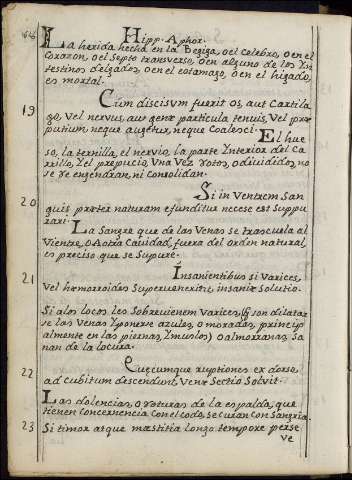 Hipp. Aphor.
La herida hecha en la Begiga, o el celebro, o en el
Corazon, o el Septo transverso, o en alguno de los Yn
testinos delgados, o en el estomago, o en el higado,
es mortal.
19
Cum discisum fuerit os, aut Cartila
go, Vel nervus, aut genæ particula tenuis, Vel præ
putium, neque augetur, neque Coalescit.
El hue
so, la ternilla, el nervio, la parte Ynterior del Ca
rrillo, y el prepucio, Una Vez rotos, o divididos, no
se re engendran, ni Consolidan.
20
Si in Ventrem San
guis præter naturam efunditur necese est Suppu
rari.
La Sangre que de las Venas se trascuela al
Vientre, o Aotra Cavidad, fuera del orden natural,
es preciso que se Supure.
21
Insanientibus si Varices,
Vel hæmorroides Supervenerint, insaniæ Solutio.
Si alos locos les Sobrevienem Varices, (q son dilatar
se las Venas Y ponerse azules, o moradas, princip
almente en las piernas, Y muslos) o almorranas, Sa
nan de la locura.
22
Quęcumque ruptiones ex dorso
ad Cubitum descendunt, Venæ Sectio Solvit.
Las dolencias, o roturas de la espalda, que
tienen Concernencia Con el codo, se curan Con Sangria.
23
Si timor atque mæstitia longo tempore perse
ve